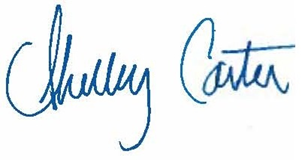 Shelley Carter